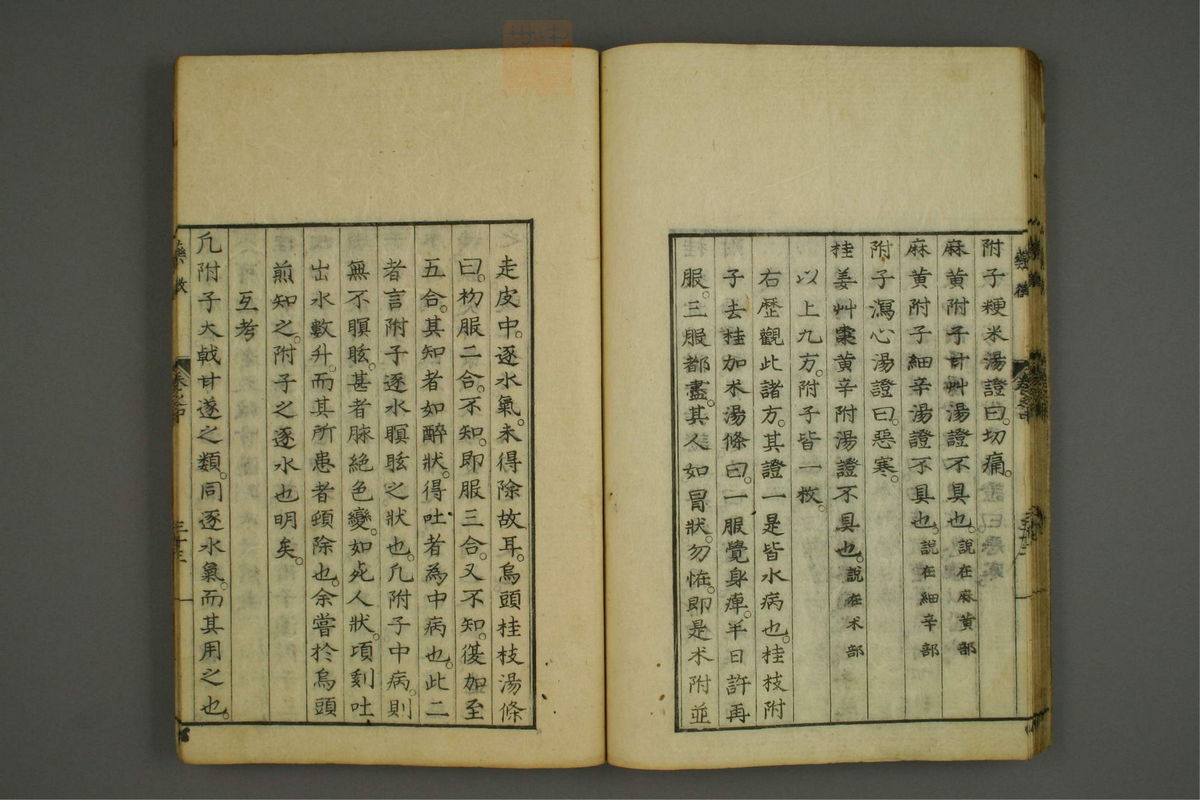 附子粳米湯證曰。切痛。
麻黃附子甘艸湯證不具也。說在麻黃部
麻黃附子細辛湯證不具也。說在細辛部
附子瀉心湯證曰。惡寒。
桂姜艸棗黃辛附湯證不具也。說在朮部
以上九方。附子皆一枚。
右歷觀此諸方。其證一是皆水病也。桂枝附
子去桂加朮湯條曰。一服覺身痺。半日許再
服。三服都盡。其人如冒狀。勿恠。即是朮附並
走皮中。逐水氣。未得除故耳。烏頭桂枝湯條
曰。初服二合。不知。即服三合。又不知。復加至
五合。其知者如醉狀。得吐者為中病也。此二
者言附子逐水瞑眩之狀也。凡附子中病。則
無不瞑眩。甚者脉絕色變。如死人狀。頃刻吐
出水數升。而其所患者頓除也。余嘗於烏頭
煎知之。附子之逐水也明矣。
互考
凡附子大戟甘遂之類。同逐水氣。而其用之也。
藥徵
卷之中
三十三